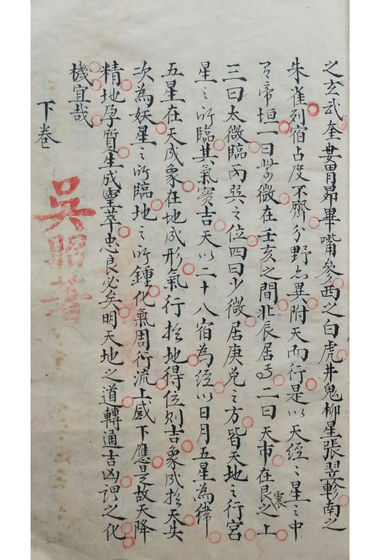 之玄武奎婁胃昴畢嘴參西之白虎井鬼柳星張翌軫南之
朱雀列宿占度不齊分野亦異附天而行是以天經之星之中
有帝垣一曰紫微在壬亥之間北辰居焉二曰天市在艮震之上
三曰太微臨丙巽之位四曰少微居庚兌之方皆天地之行宮
星之所臨其氣實吉天以二十八宿為經以日月五星為緯
五星在天成象在地成形氣行於地得位則吉象成於天失
次為妖星之所臨地之所鍾化氣周行流上感下應是故天降
精地孕質生成靈草忠良必矣明天地之道轉通吉凶謂之化
機宜哉
下卷
吳